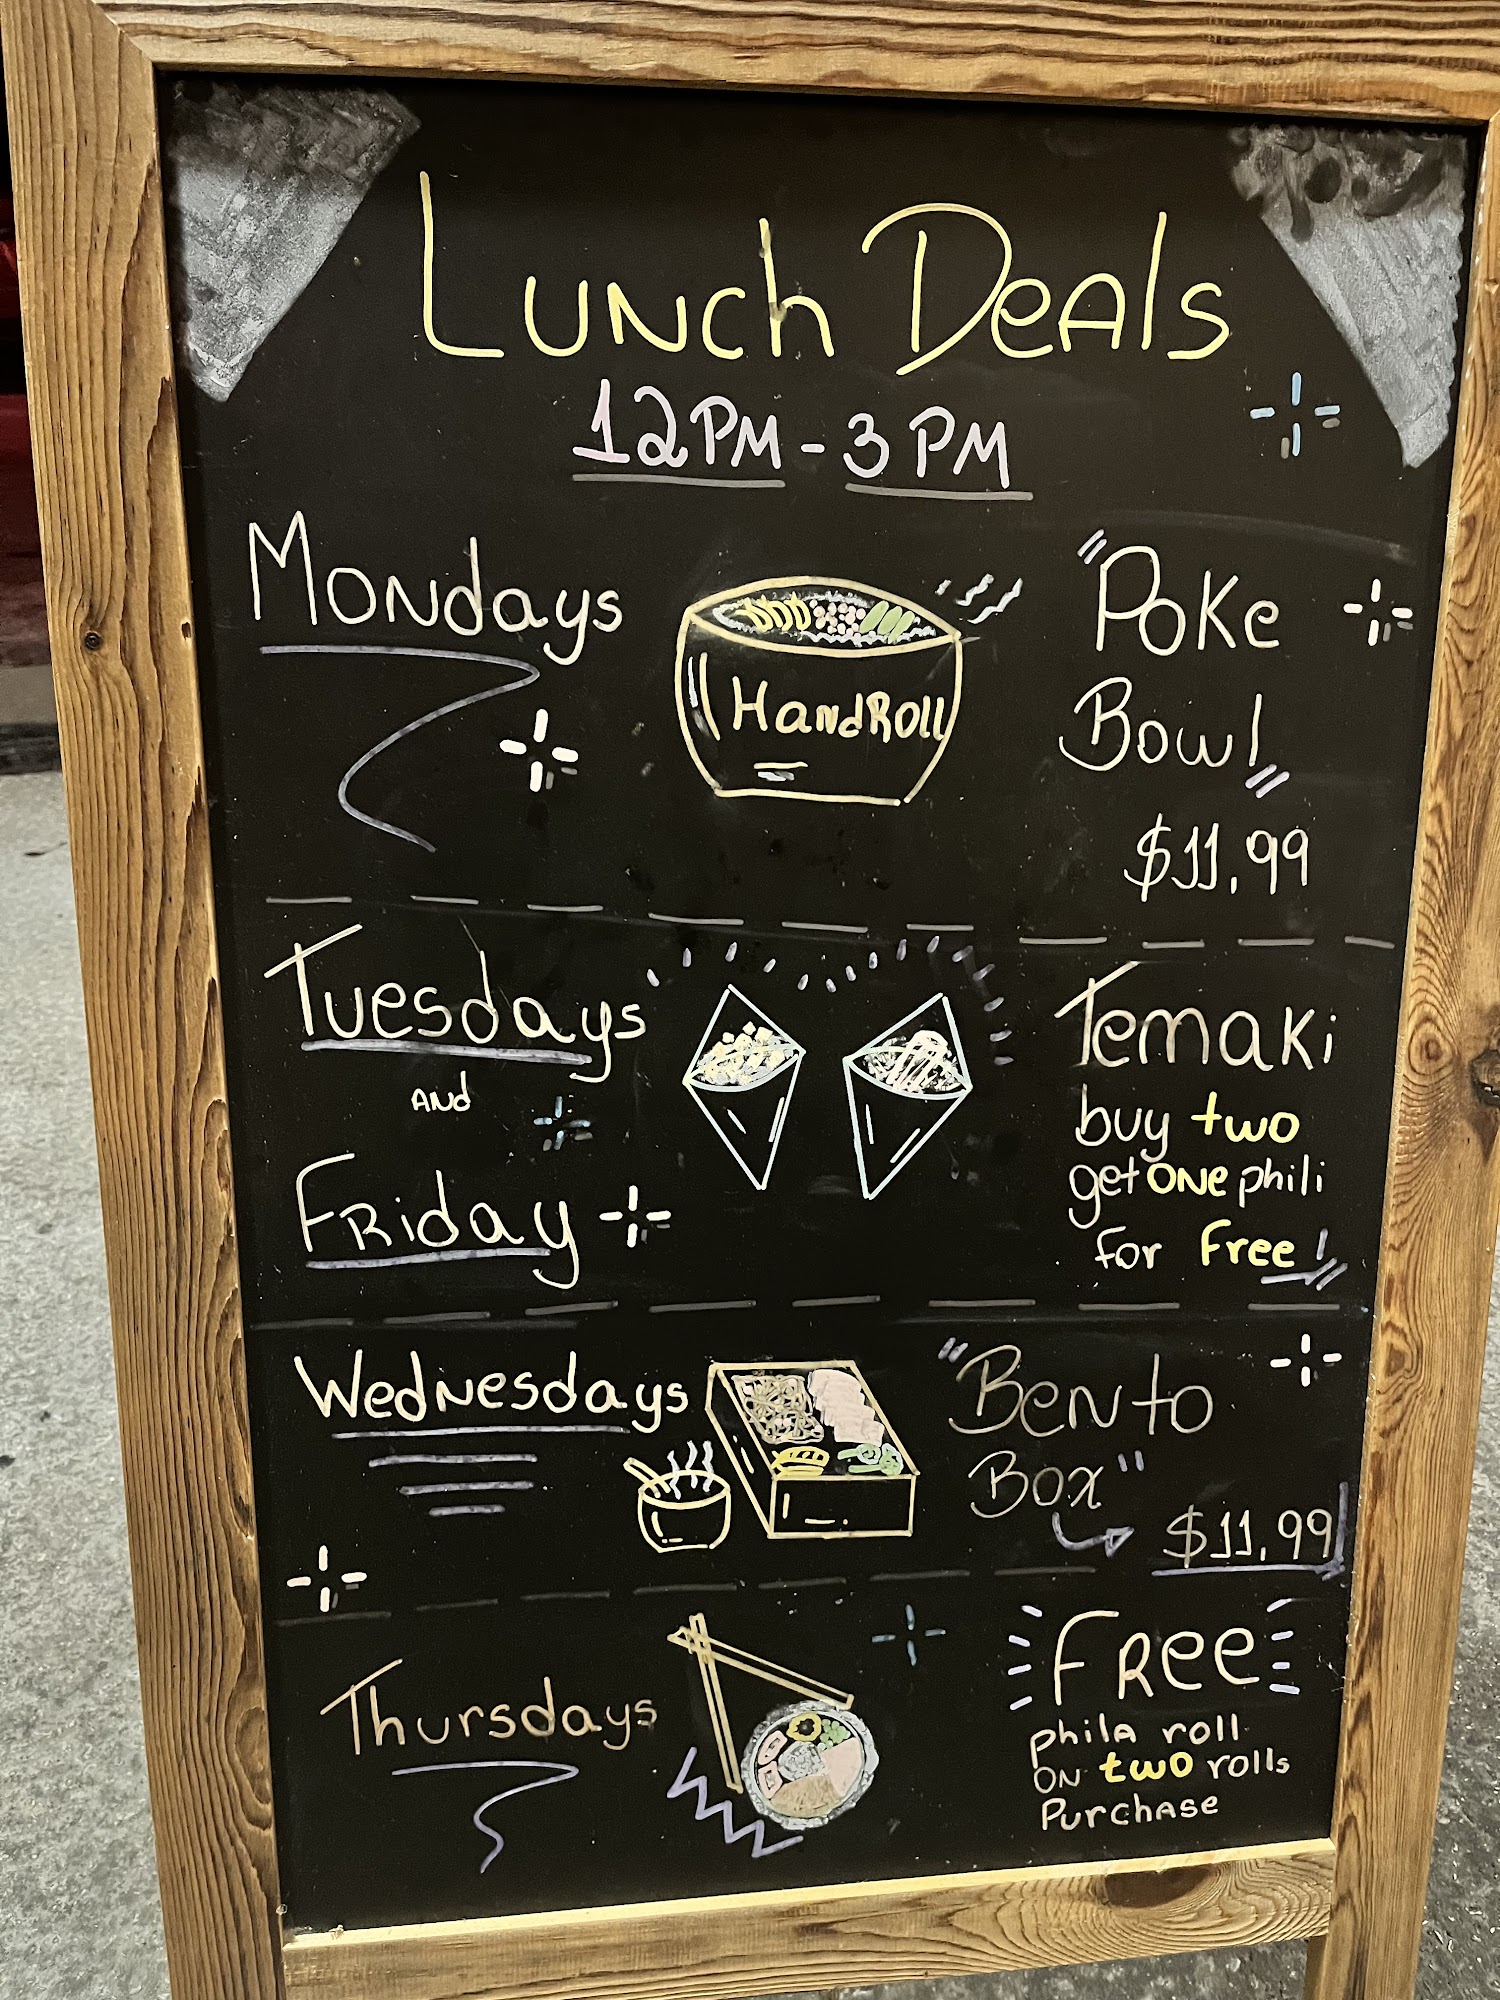 Lunch Deals
12PM - 3PM
Mondays
HandRoll
"Poke
Bowl"
$11,99
Tuesdays
AND
Friday
Temaki
buy two
get ONE phili
for free!
Wednesdays
"Bento
Box"
$11,99
Thursdays
FRee
phila roll
ON two rolls
Purchase